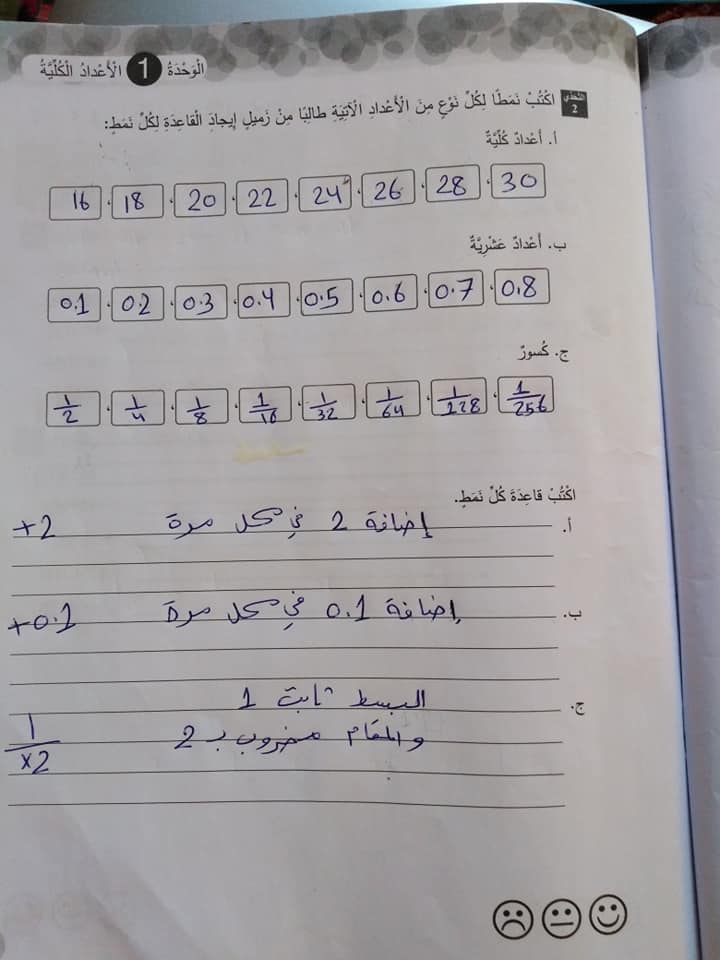 الْوَحْدَةُ 1 الْأَعْدادُ الْكُلِّيَّةُ
التَّحَدّي 2 اكْتُبْ نَمَطًا لِكُلِّ نَوْعٍ مِنَ الْأَعْدادِ الْآتِيَةِ طالِبًا مِنْ زَميلٍ إيجادَ الْقاعِدَةِ لِكُلِّ نَمَطٍ:
أ. أَعْدادٌ كُلِّيَّةٌ
16 ، 18 ، 20 ، 22 ، 24 ، 26 ، 28 ، 30
ب. أَعْدادٌ عَشْرِيَّةٌ
0.1 ، 0.2 ، 0.3 ، 0.4 ، 0.5 ، 0.6 ، 0.7 ، 0.8
ج. كُسورٌ
1/2 ، 1/4 ، 1/8 ، 1/16 ، 1/32 ، 1/64 ، 1/128 ، 1/256
اكْتُبْ قاعِدَةَ كُلِّ نَمَطٍ.
أ. إضافة 2 في كل مرة +2
ب. إضافة 0.1 في كل مرة +0.1
ج. البسط ثابت 1
والمقام مضروب بـ 2 1/×2